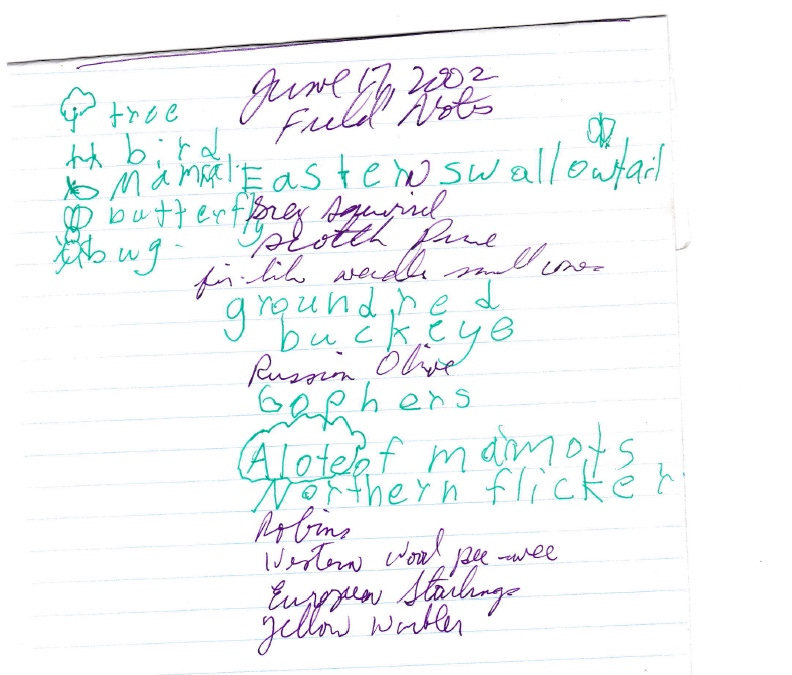 June 17, 2002
Field Notes
tree
bird
Mammal
butterfly
bug
Eastern swallowtail
Grey squirrel
Scotch Pine
fir-like needle small cones
ground red
buckeye
Russian Olive
Gophers
Alote of marmots
Northern flicker
Robins
Western wood pee-wee
European Starlings
Yellow Warbler